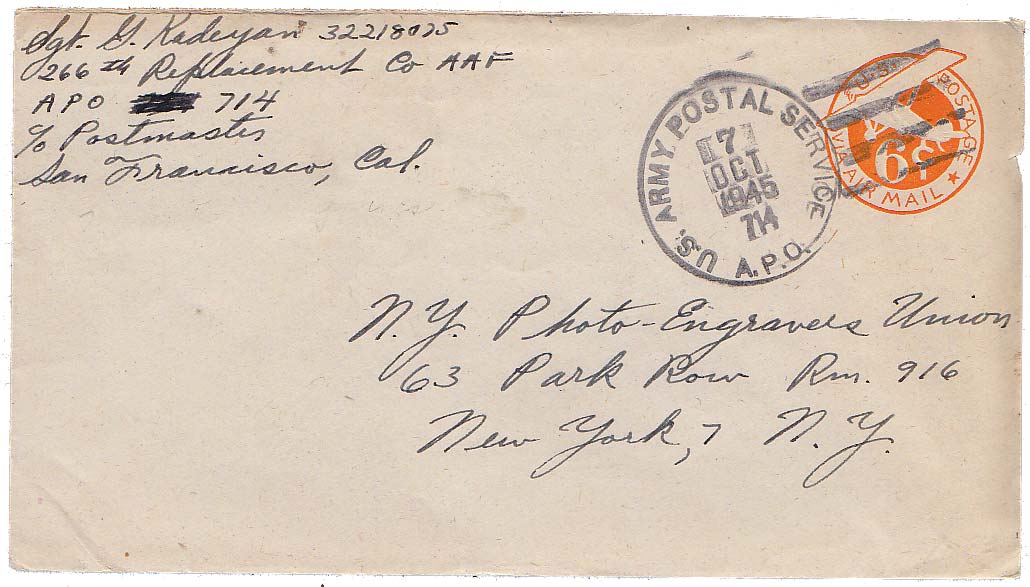 Sgt. G. Kadeyan 32218075
266th Replacement Co AAF
APO 714
c/o Postmaster
San Francisco, Cal.
U.S. ARMY. POSTAL SERVICE
7
OCT.
1945
714
A.P.O.
U.S. POSTAGE
6¢
VIA AIR MAIL
N.Y. Photo-Engravers Union
63 Park Row Rm. 916
New York, 7 N.Y.